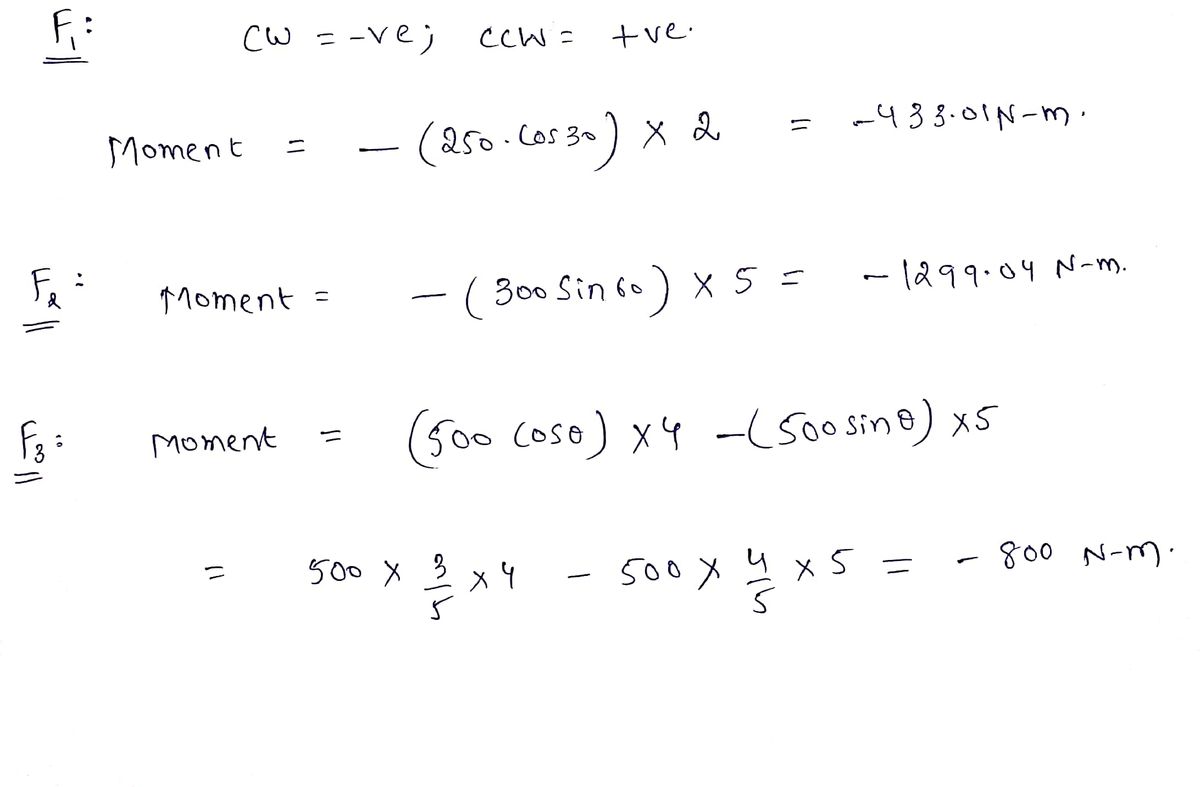 F₁:
CW = -ve; CCW = +ve.
Moment = - (250.Cos30) × 2 = -433.01N-m.
F₂: Moment = - (300 Sin60) × 5 = - 1299.04 N-m.
F₃: Moment = (500 Cosθ) × 4 - (500 sinθ) ×5
= 500 × 3/5 × 4 - 500 × 4/5 × 5 = - 800 N-m.